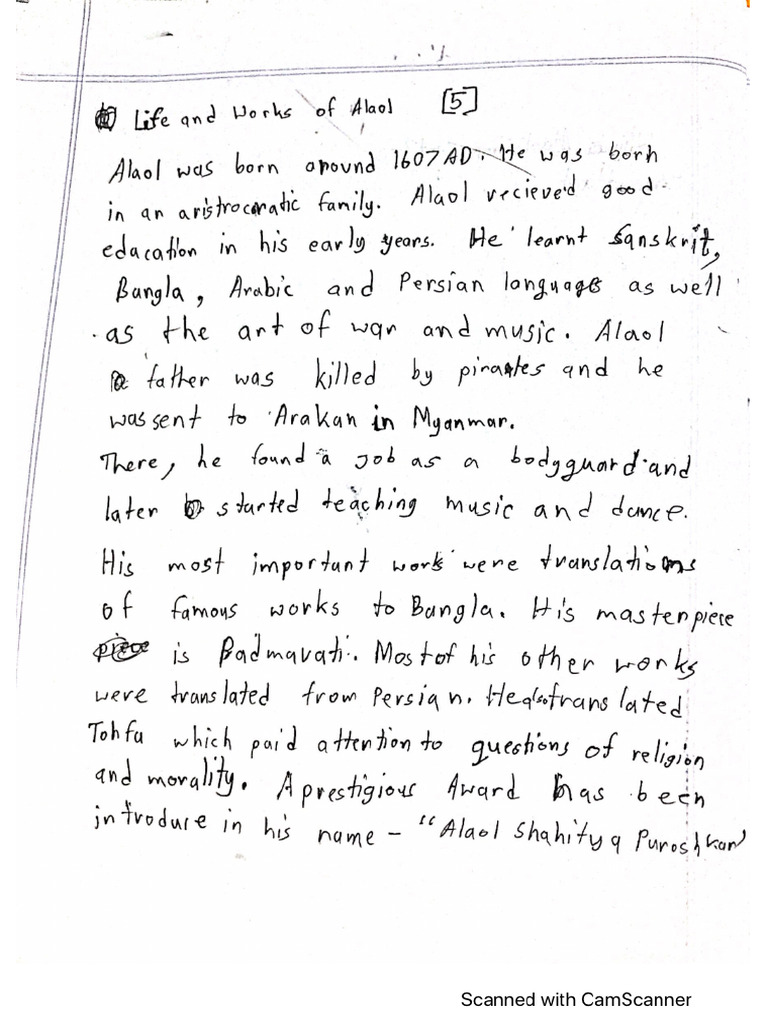 Life and Works of Alaol [5]
Alaol was born around 1607 AD. He was born
in an aristrocratic family. Alaol recieved good
edacation in his early years. He learnt Sanskrit,
Bangla, Arabic and Persian language as well
as the art of war and music. Alaol
father was killed by pirates and he
was sent to Arakan in Myanmar.
There, he found a job as a bodyguard and
later started teaching music and dance.
His most important work were translations
of famous works to Bangla. His masterpiece
is Padmavati. Most of his other works
were translated from Persian. He also translated
Tohfa which paid attention to questions of religion
and morality. A prestigious Award has been
introduce in his name - "Alaol Shahitya Puroshkar
Scanned with CamScanner